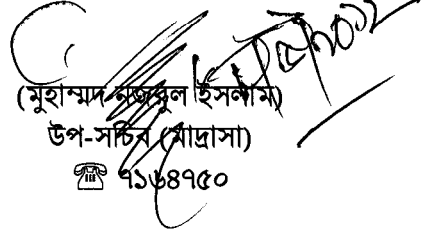 (মুহাম্মদ নজমুল ইসলাম)
উপ-সচিব (মাদ্রাসা)
☎ ৭১৬৪৭৫০